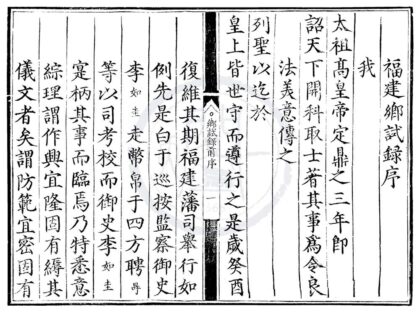 福建鄉試錄序
我
太祖高皇帝定鼎之三年即
詔天下開科取士著其事爲令良
法美意傳之
列聖以迄於
皇上皆世守而遵行之是歲癸酉
鄉試錄前序
復維其期福建藩司舉行如
例先是白于巡按監察御史
李如圭走幣帛于四方聘
等以司考校而御史李如圭
寔柄其事而臨焉乃特悉意
綜理謂作興宜隆固有縟其
儀文者矣謂防範宜密固有